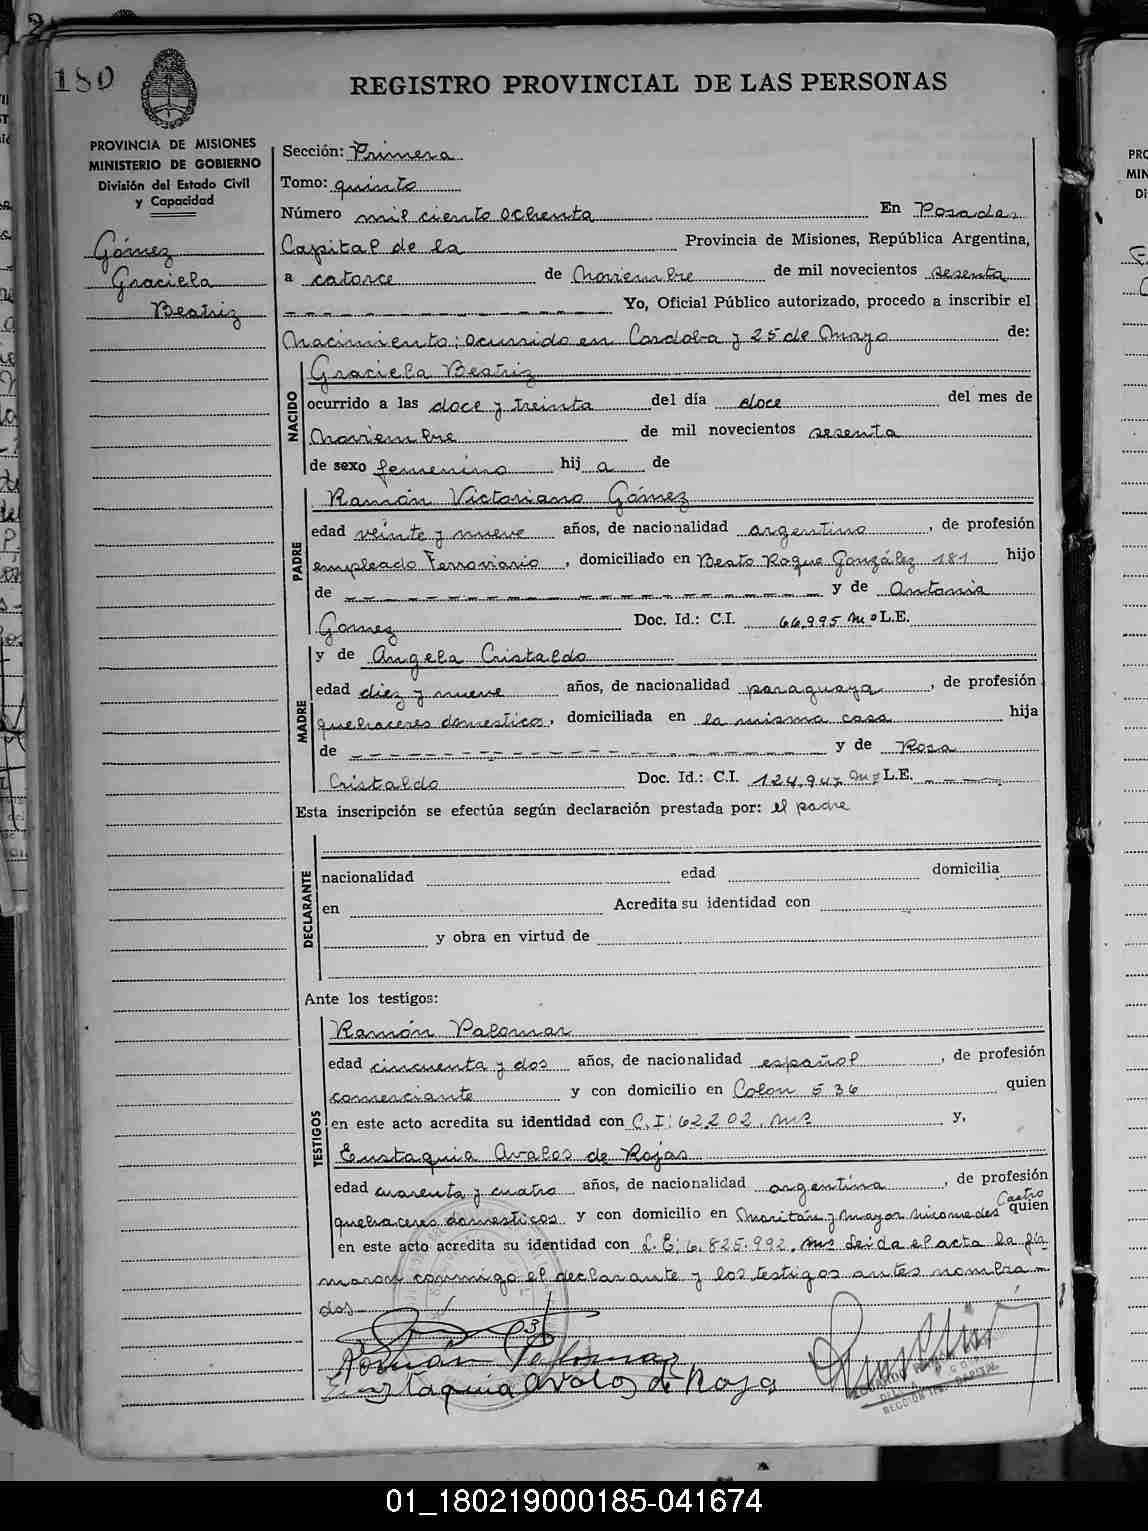 180
REGISTRO PROVINCIAL DE LAS PERSONAS
PROVINCIA DE MISIONES
MINISTERIO DE GOBIERNO
División del Estado Civil
y Capacidad
Gómez
Graciela
Beatriz
Sección: Primera
Tomo: quinto
Número mil ciento ochenta En Posadas,
Capital de la Provincia de Misiones, República Argentina,
a catorce de Noviembre de mil novecientos sesenta
Yo, Oficial Público autorizado, procedo a inscribir el
Nacimiento: ocurrido en Cordoba y 25 de Mayo de:
NACIDO
Graciela Beatriz
ocurrido a las doce y treinta del día doce del mes de
Noviembre de mil novecientos sesenta
de sexo femenino hij a de
PADRE
Ramón Victoriano Gómez
edad veinte y nueve años, de nacionalidad argentino, de profesión
empleado Ferroviario, domiciliado en Beato Roque González 181 hijo
de y de Antonia
Gomez Doc. Id.: C.I. 66.995 Mnes L.E.
MADRE
y de Angela Cristaldo
edad diez y nueve años, de nacionalidad paraguaya, de profesión
quehaceres domesticos, domiciliada en la misma casa hija
de y de Rosa
Cristaldo Doc. Id.: C.I. 124.947 L.E.
Esta inscripción se efectúa según declaración prestada por: el padre
DECLARANTE
nacionalidad edad domicilia
en Acredita su identidad con
y obra en virtud de
Ante los testigos:
TESTIGOS
Ramón Palomar
edad cincuenta y dos años, de nacionalidad español, de profesión
comerciante y con domicilio en Colon 536 quien
en este acto acredita su identidad con C.I: 62202. y,
Eustaquia Avalos de Rojas
edad cuarenta y cuatro años, de nacionalidad argentina, de profesión
quehaceres domesticos y con domicilio en Moritán y Mayor Nicomedes Castro quien
en este acto acredita su identidad con L.E: 6.825.992. Leida el acta la fir
maron conmigo el declarante y los testigos antes nombra-
dos
Román Palomar
Eustaquia avalos de Rojas
01_180219000185-041674